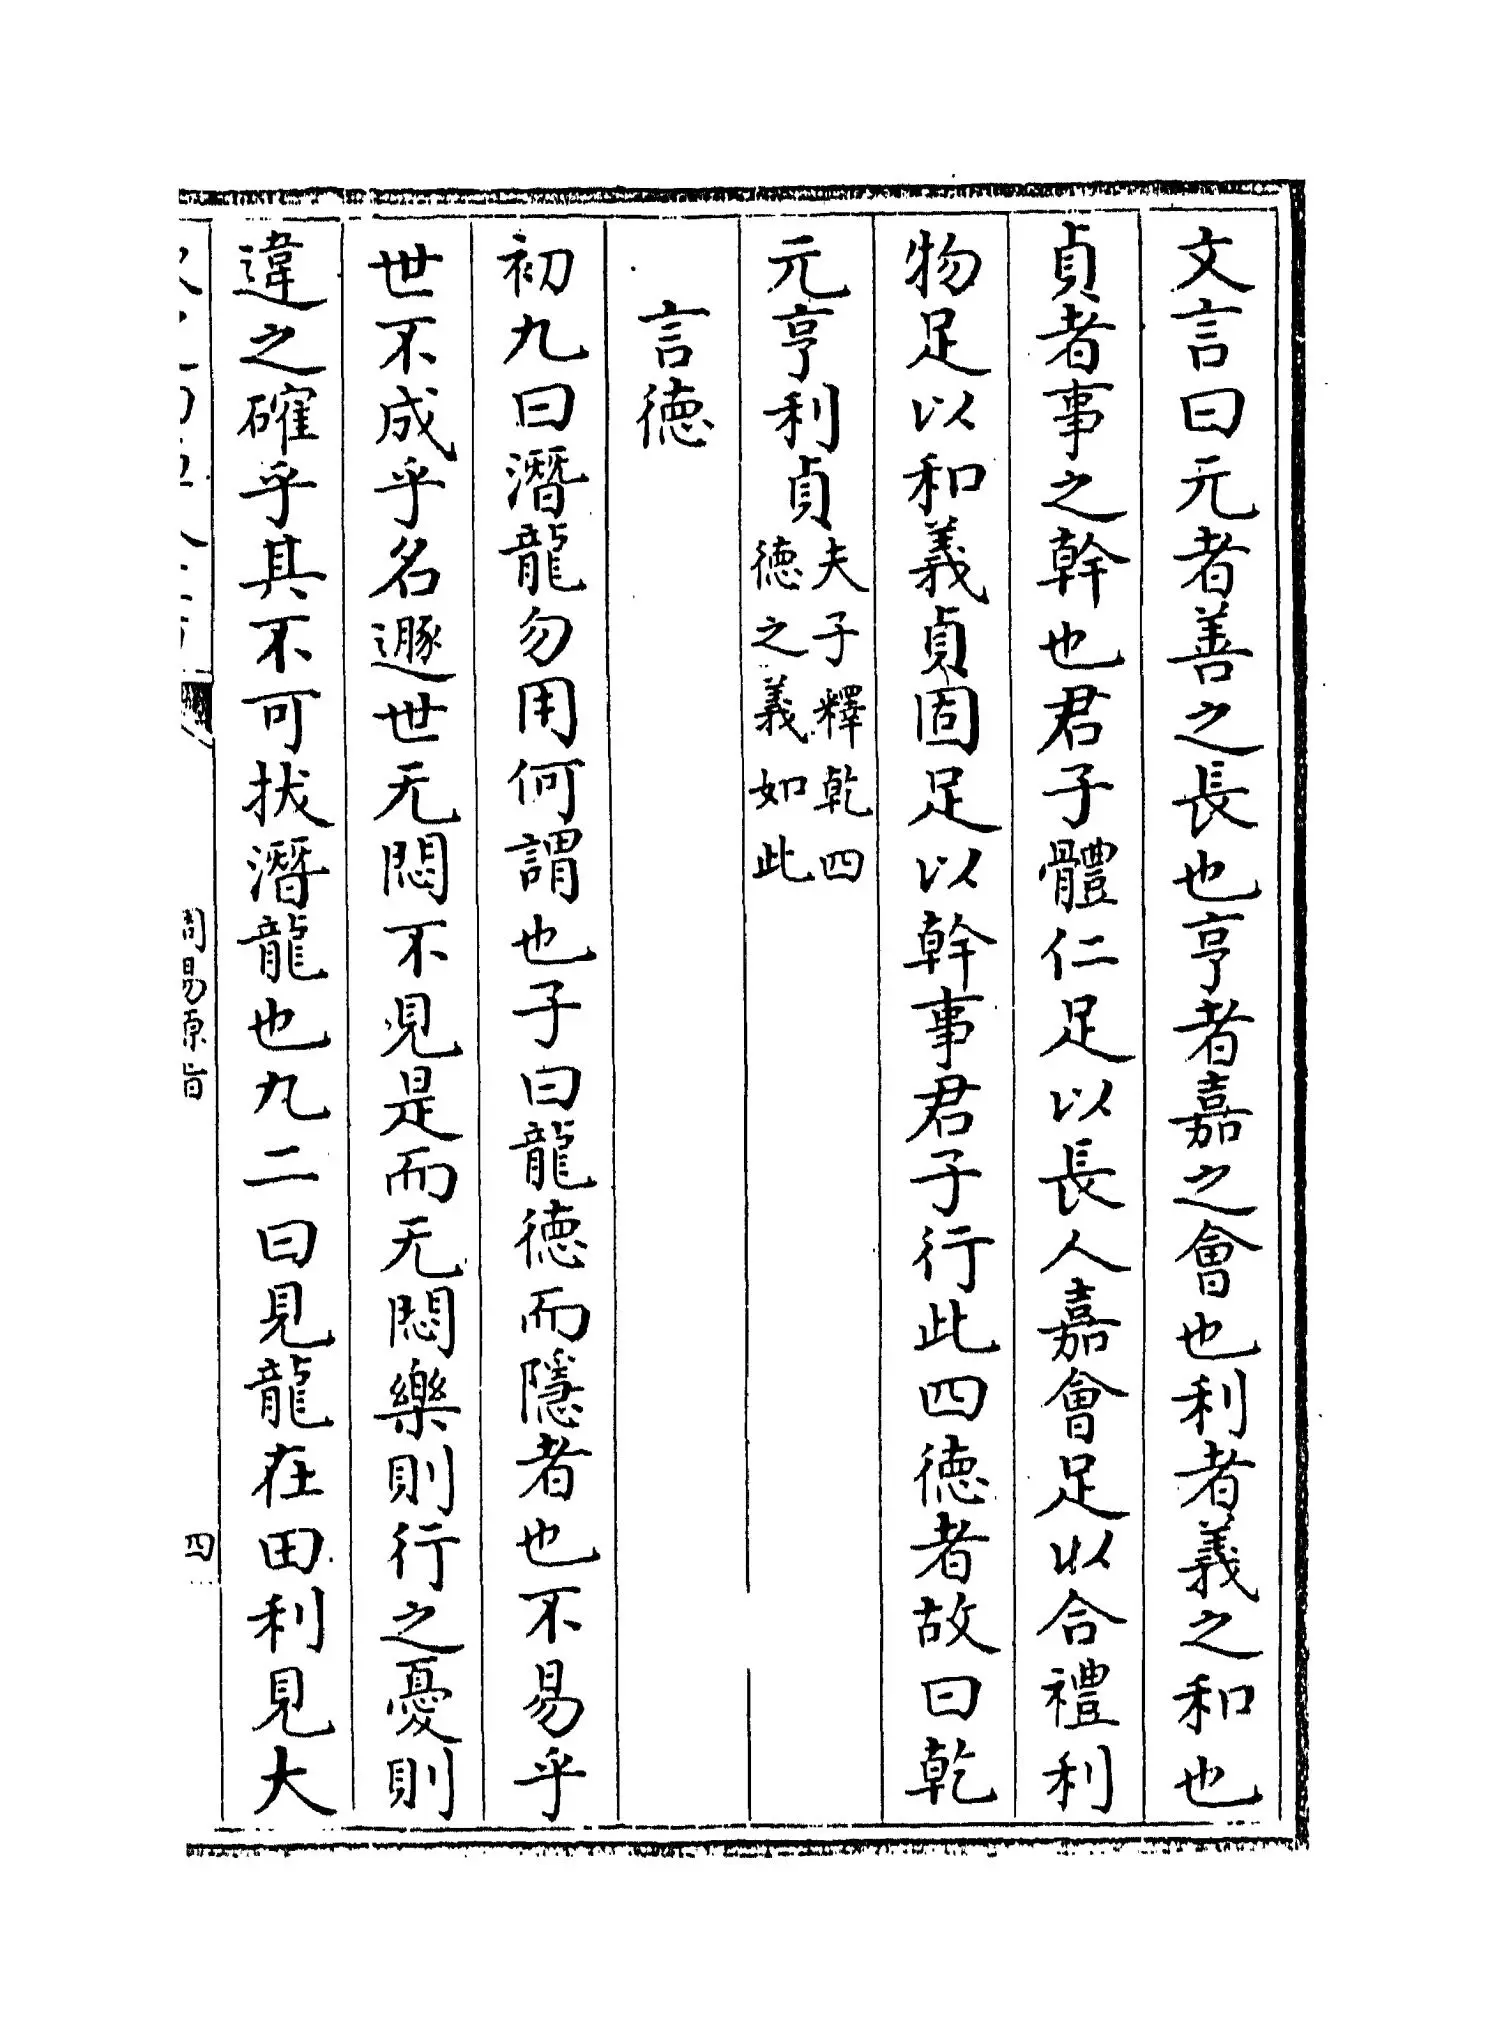 文言曰元者善之長也亨者嘉之會也利者義之和也
貞者事之幹也君子體仁足以長人嘉會足以合禮利
物足以和義貞固足以幹事君子行此四徳者故曰乾
元亨利貞夫子釋乾四
徳之義如此
言徳
初九曰潛龍勿用何謂也子曰龍徳而隱者也不易乎
世不成乎名遯世无悶不見是而无悶樂則行之憂則
違之確乎其不可拔潛龍也九二曰見龍在田利見大
周易原旨
四